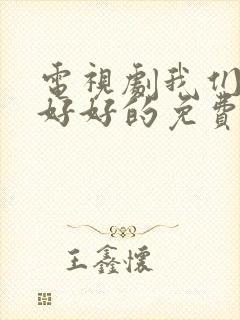 電視劇我们
好好的免費
王鑫懷